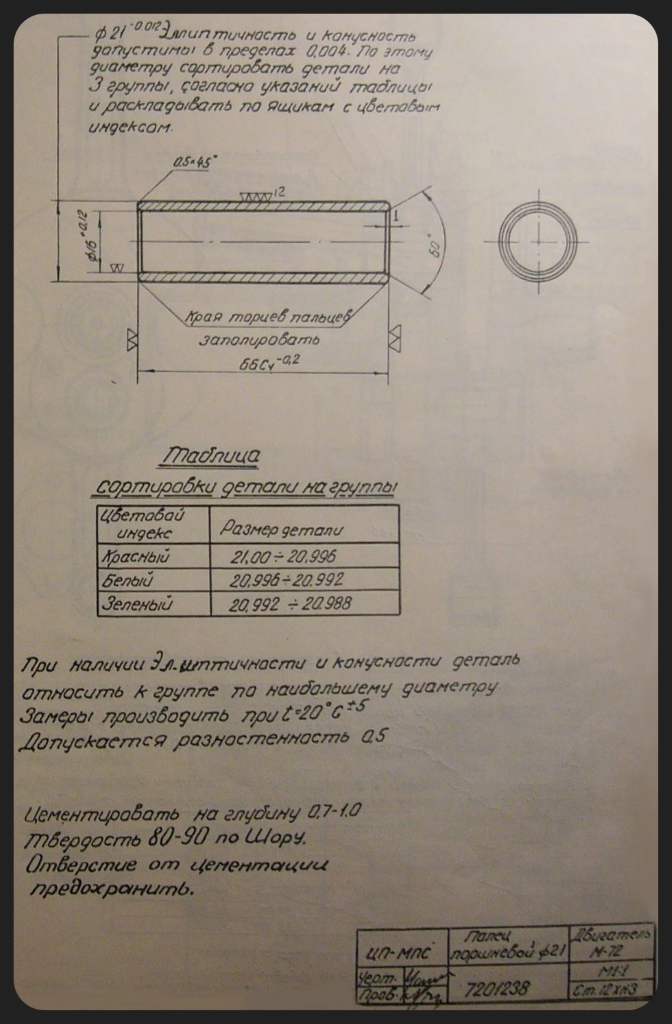 ф21 -0.012 Эллиптичность и конусность
допустимы в пределах 0,004. По этому
диаметру сортировать детали на
3 группы, согласно указаний таблицы
и раскладывать по ящикам с цветовым
индексом.
0.5×45°
12
ф16 +0,12
1
60°
Края торцев пальцев
заполировать
66С₄ -0,2
Таблица
сортировки детали на группы
Цветовой индекс
Размер детали
Красный 21,00 ÷ 20,996
Белый 20,996 ÷ 20,992
Зеленый 20,992 ÷ 20.988
При наличии Эллиптичности и конусности деталь
относить к группе по наибольшему диаметру
Замеры производить при t=20°C ±5
Допускается разностенность 0,5
Цементировать на глубину 0,7-1.0
Твердость 80-90 по Шору.
Отверстие от цементации
предохранить.
ЦП-МПС
Палец
поршневой ф21
Двигатель
М-72
Черт.
Пров.
7201238
М1:1
Ст.12хн3